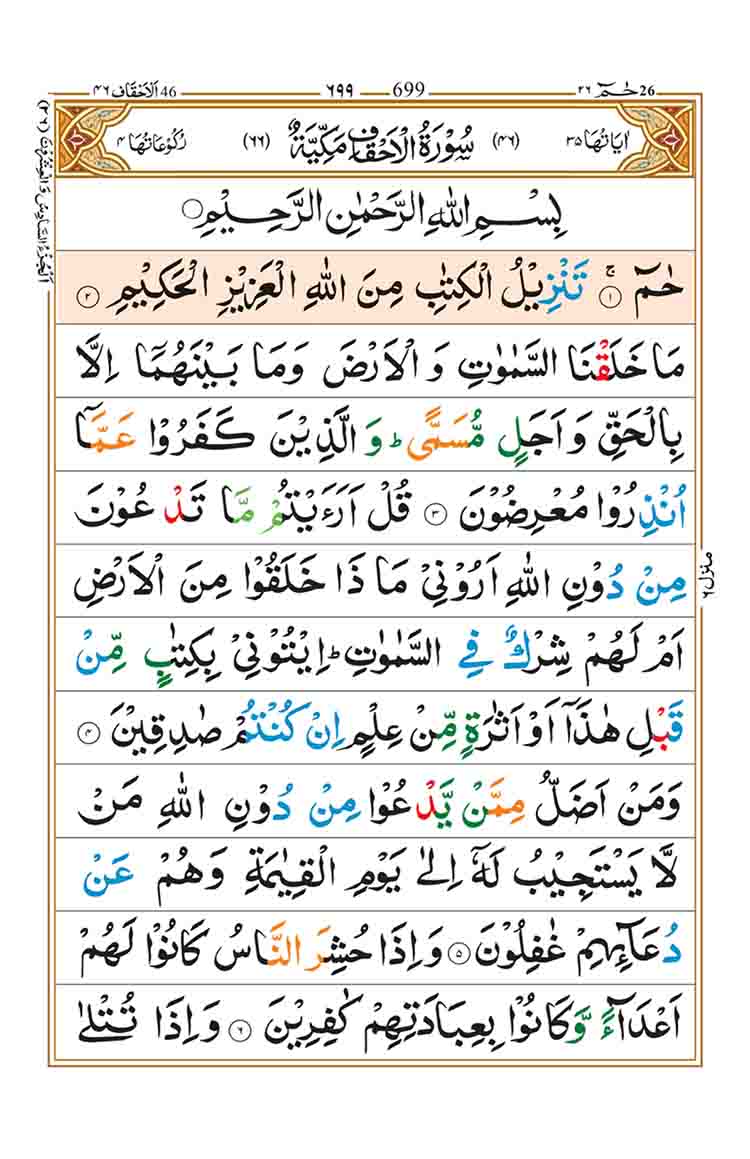 26 حٰمٓ ٢٦ 699 ٦٩٩ 46 الاحقاف ٤٦
اٰیَاتُهَا ٣٥ (٤٦) سُوْرَةُ الْاَحْقَافِ مَكِّیَّةٌ (٦٦) رُكُوْعَاتُهَا ٤
بِسْمِ اللّٰهِ الرَّحْمٰنِ الرَّحِیْمِ
حٰمٓ ۚ ۝١ تَنْزِیْلُ الْكِتٰبِ مِنَ اللّٰهِ الْعَزِیْزِ الْحَكِیْمِ ۝٢
مَا خَلَقْنَا السَّمٰوٰتِ وَ الْاَرْضَ وَمَا بَیْنَهُمَاۤ اِلَّا
بِالْحَقِّ وَ اَجَلٍ مُّسَمًّی ؕ وَ الَّذِیْنَ كَفَرُوْا عَمَّاۤ
اُنْذِرُوْا مُعْرِضُوْنَ ۝٣ قُلْ اَرَءَیْتُمْ مَّا تَدْعُوْنَ
مِنْ دُوْنِ اللّٰهِ اَرُوْنِیْ مَا ذَا خَلَقُوْا مِنَ الْاَرْضِ
اَمْ لَهُمْ شِرْكٌ فِی السَّمٰوٰتِ ؕ اِیْتُوْنِیْ بِكِتٰبٍ مِّنْ
قَبْلِ هٰذَاۤ اَوْ اَثٰرَةٍ مِّنْ عِلْمٍ اِنْ كُنْتُمْ صٰدِقِیْنَ ۝٤
وَمَنْ اَضَلُّ مِمَّنْ یَّدْعُوْا مِنْ دُوْنِ اللّٰهِ مَنْ
لَّا یَسْتَجِیْبُ لَهٗۤ اِلٰی یَوْمِ الْقِیٰمَةِ وَهُمْ عَنْ
دُعَآىِٕهِمْ غٰفِلُوْنَ ۝٥ وَ اِذَا حُشِرَ النَّاسُ كَانُوْا لَهُمْ
اَعْدَآءً وَّ كَانُوْا بِعِبَادَتِهِمْ كٰفِرِیْنَ ۝٦ وَ اِذَا تُتْلٰی
اَلْجُزْءُ السَّادِسُ وَ الْعِشْرُوْنَ (٢٦)
منزل ٦